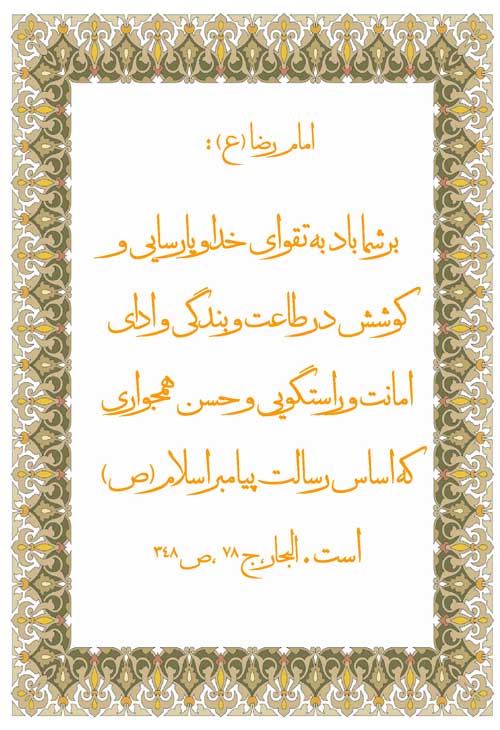 امام رضا (ع) :
بر شما باد به تقوای خدا و پارسایی و
کوشش در طاعت و بندگی و ادای
امانت و راستگویی و حسن همجواری
که اساس رسالت پیامبر اسلام (ص)
است . البحار، ج ۷۸ ، ص ۳۴۸